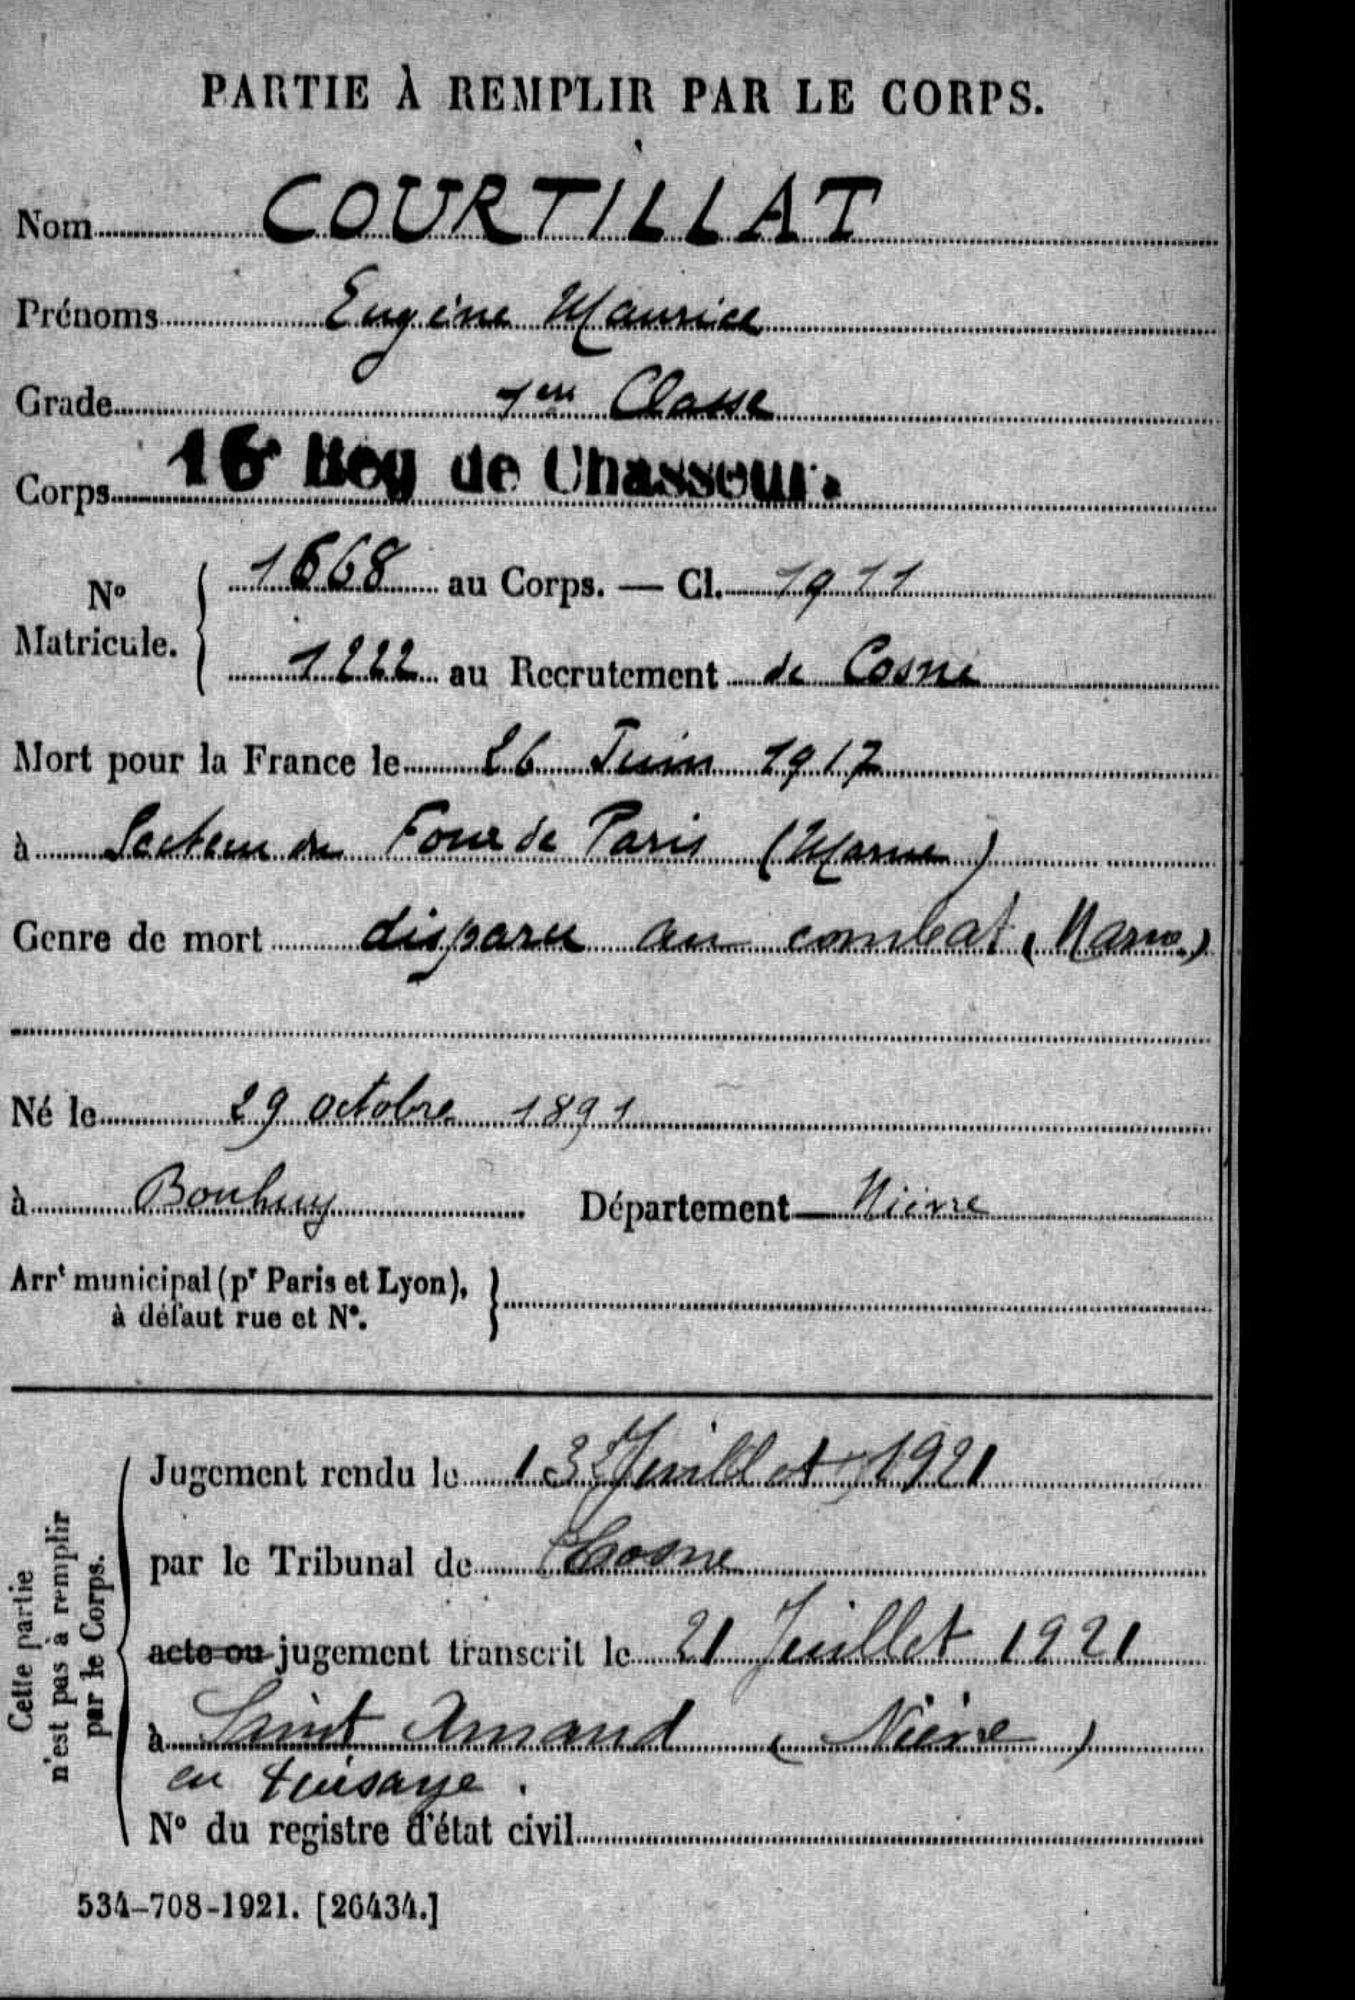 PARTIE À REMPLIR PAR LE CORPS.
Nom COURTILLAT
Prénoms Eugène Maurice
Grade 1ere Classe
Corps 16e Reg de Chasseurs
N° Matricule. 1668 au Corps. — Cl. 1911
1222 au Recrutement de Cosne
Mort pour la France le 26 Juin 1917
à Secteur du Four de Paris (Marne)
Genre de mort disparu au combat (Marne)
Né le 29 octobre 1891
à Bouhy Département Nièvre
Arrt municipal (pr Paris et Lyon),
à défaut rue et N°.
Cette partie
n'est pas à remplir
par le Corps.
Jugement rendu le 13 Juillet 1921
par le Tribunal de Cosne
acte ou jugement transcrit le 21 Juillet 1921
à Saint Amand (Nièvre)
en Puisaye.
N° du registre d'état civil
534-708-1921. [26434.]